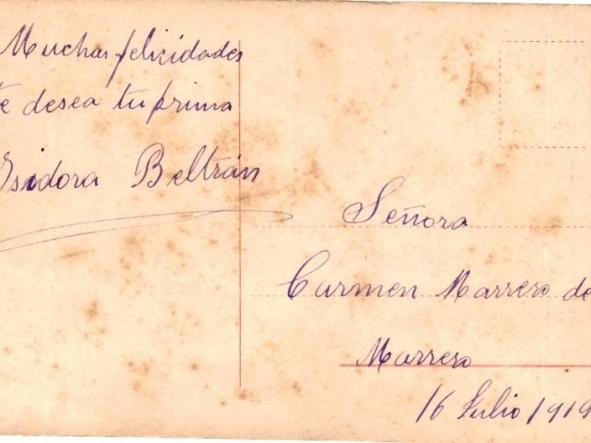 Muchas felicidades
te desea tu prima
Isidora Beltrán
Señora
Carmen Marrero de
Marrero
16 Julio 1919